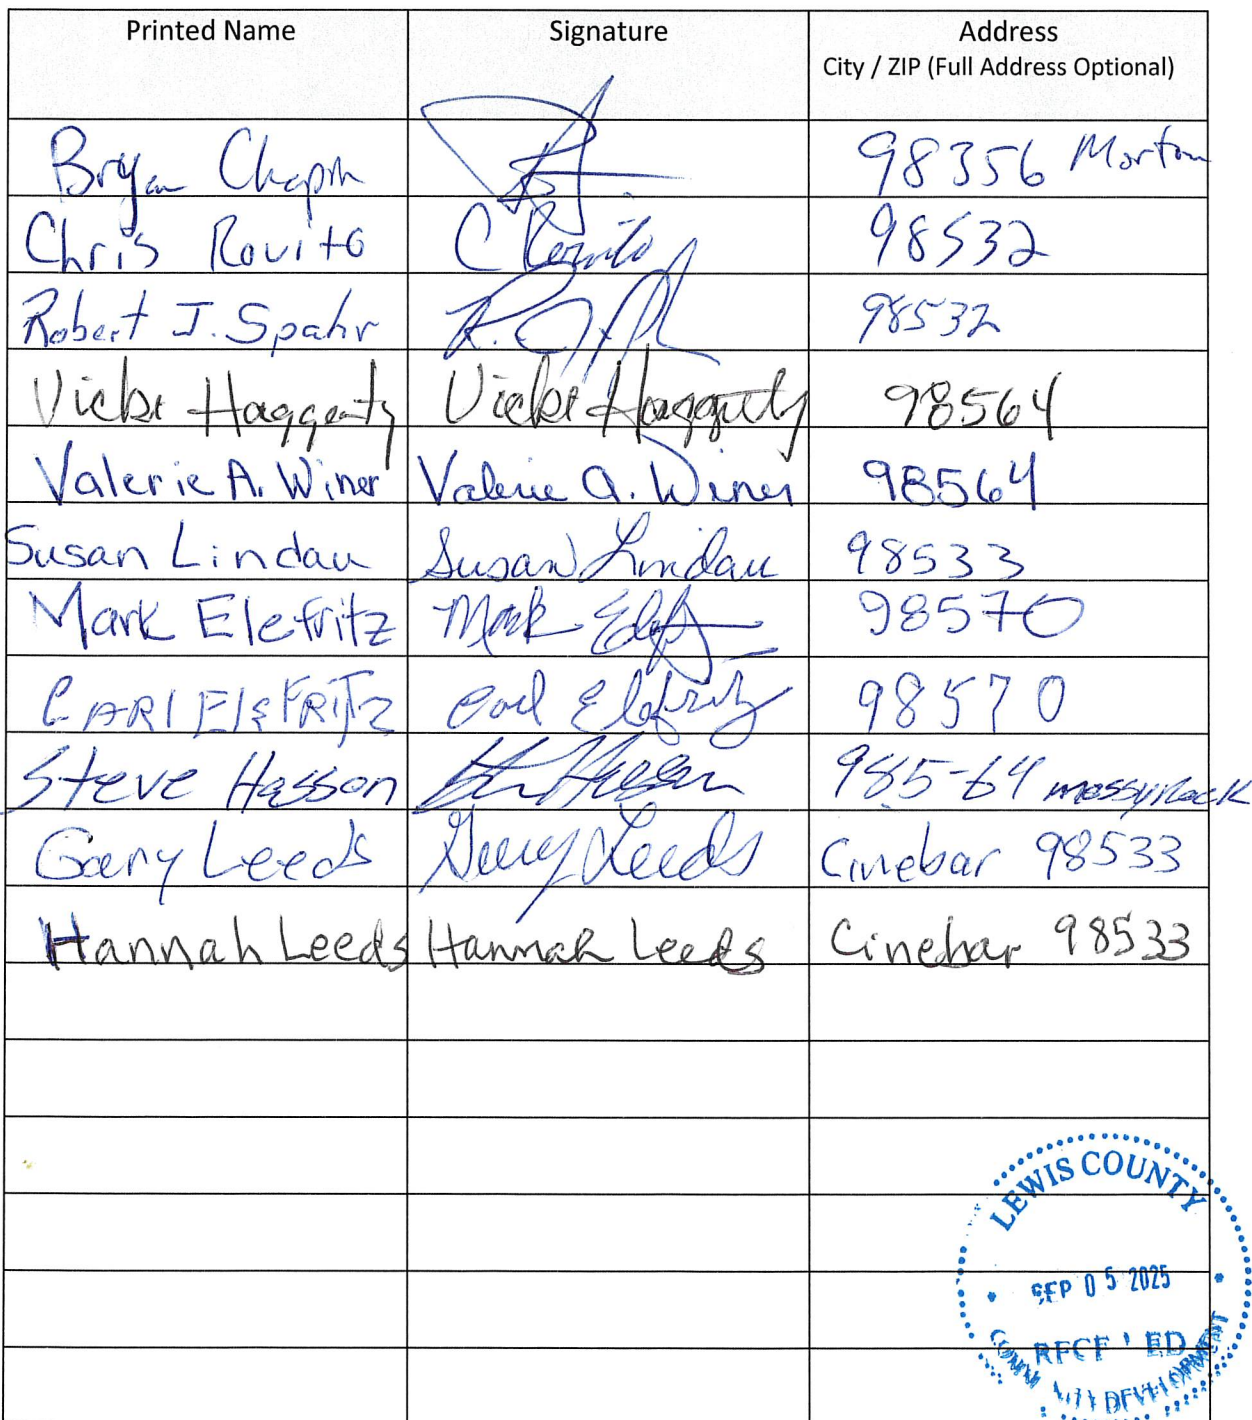 Printed Name Signature Address
City / ZIP (Full Address Optional)
Bryan Chapin 98356 Morton
Chris Rovito C Rovito 98532
Robert J. Spahr 98532
Vicki Haggerty Vicki Haggerty 98564
Valerie A. Winer Valerie A. Winer 98564
Susan Lindau Susan Lindau 98533
Mark Elefritz Mark 98570
CARl ElEFRiTz Carl Elefritz 98570
Steve Hasson 985-64 mossyrock
Gary Leeds Gary Leeds Cinebar 98533
Hannah Leeds Hannah Leeds Cinebar 98533
LEWIS COUNTY
SEP 05 2025
RECEIVED
COMMUNITY DEVELOPMENT